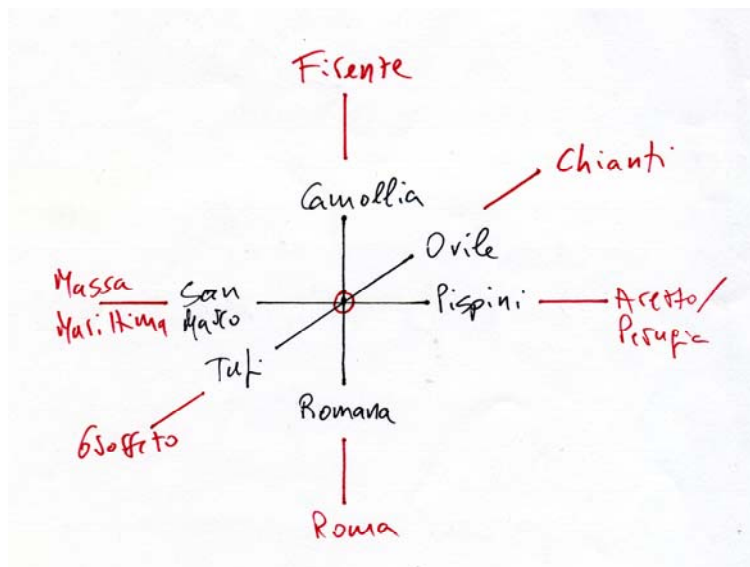 Firenze
Chianti
Camollia
Ovile
Massa
Marittima
San
Marco
Pispini
Arezzo/
Perugia
Tufi
Grosseto
Romana
Roma